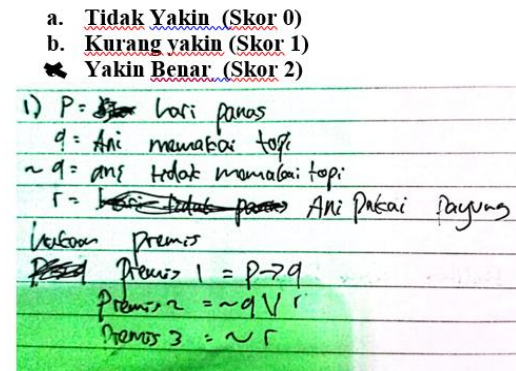 a. Tidak Yakin (Skor 0)
b. Kurang yakin (Skor 1)
Yakin Benar (Skor 2)
1) P = hari panas
q = Ani memakai topi
~ q = ani tidak memakai topi
r = Ani Pakai Payung
premis
Premis 1 = P → q
Premis 2 = ~q V r
Premis 3 = ~ r